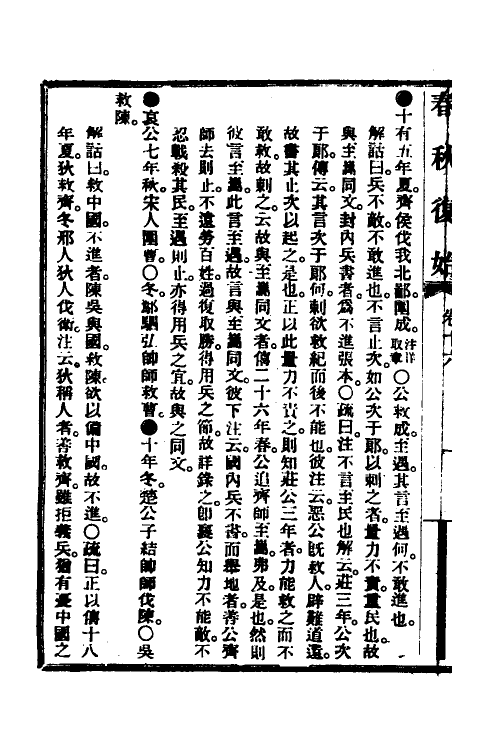 春秋復始 卷十六
●十有五年夏齊侯伐我北鄙圍成注詳取鄆〇公救成至遇其言至遇何不敢進也
解詁曰兵不敵不敢進也不言止次如公次于郎以刺之者量力不責重民也故
與至嶲同文封內兵書者為不進張本〇疏曰注不言至民也解云莊三年公次
于郎傳云其言次于郎何刺欲救紀而後不能也彼注云惡公既救人辟難道還
故書其止次以起之是也正以此量力不責之則知莊公三年者力能救之而不
敢救故刺之云故與至嶲同文者僖二十六年春公追齊師至嶲弗及是也然則
彼言至嶲此言至遇故言與至嶲同文彼下注云國內兵不書而舉地者善公齊
師去則止不遠勞百姓過復取勝得用兵之節故詳錄之卽襄公知力不能敵不
忍戰殺其民至遇則止亦得用兵之宜故與之同文
●哀公七年秋宋人圍曹〇冬鄭駟弘帥師救曹●十年冬楚公子結帥師伐陳〇吳
救陳
解詁曰救中國不進者陳吳與國救陳欲以備中國故不進〇疏曰正以僖十八
年夏狄救齊冬邢人狄人伐衛注云狄稱人者善救齊雖拒義兵猶有憂中國之